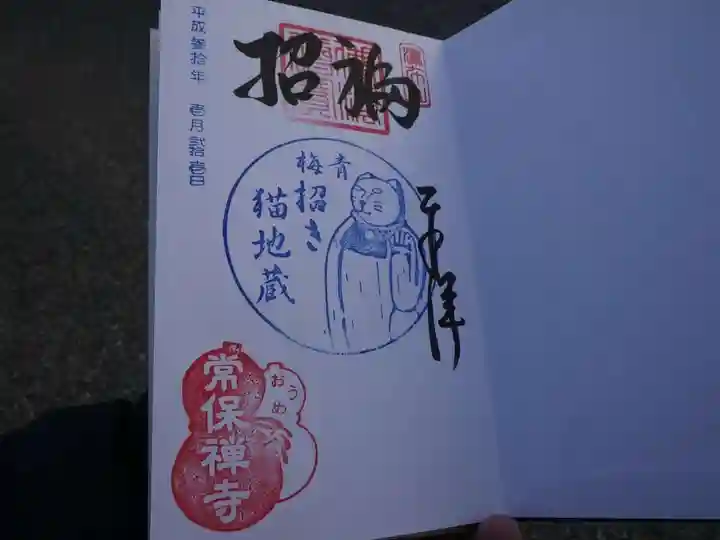 平成参拾年 壱月弐拾壱日
招福
奉拝
青梅
招き
猫地蔵
常保禅寺
おうめ